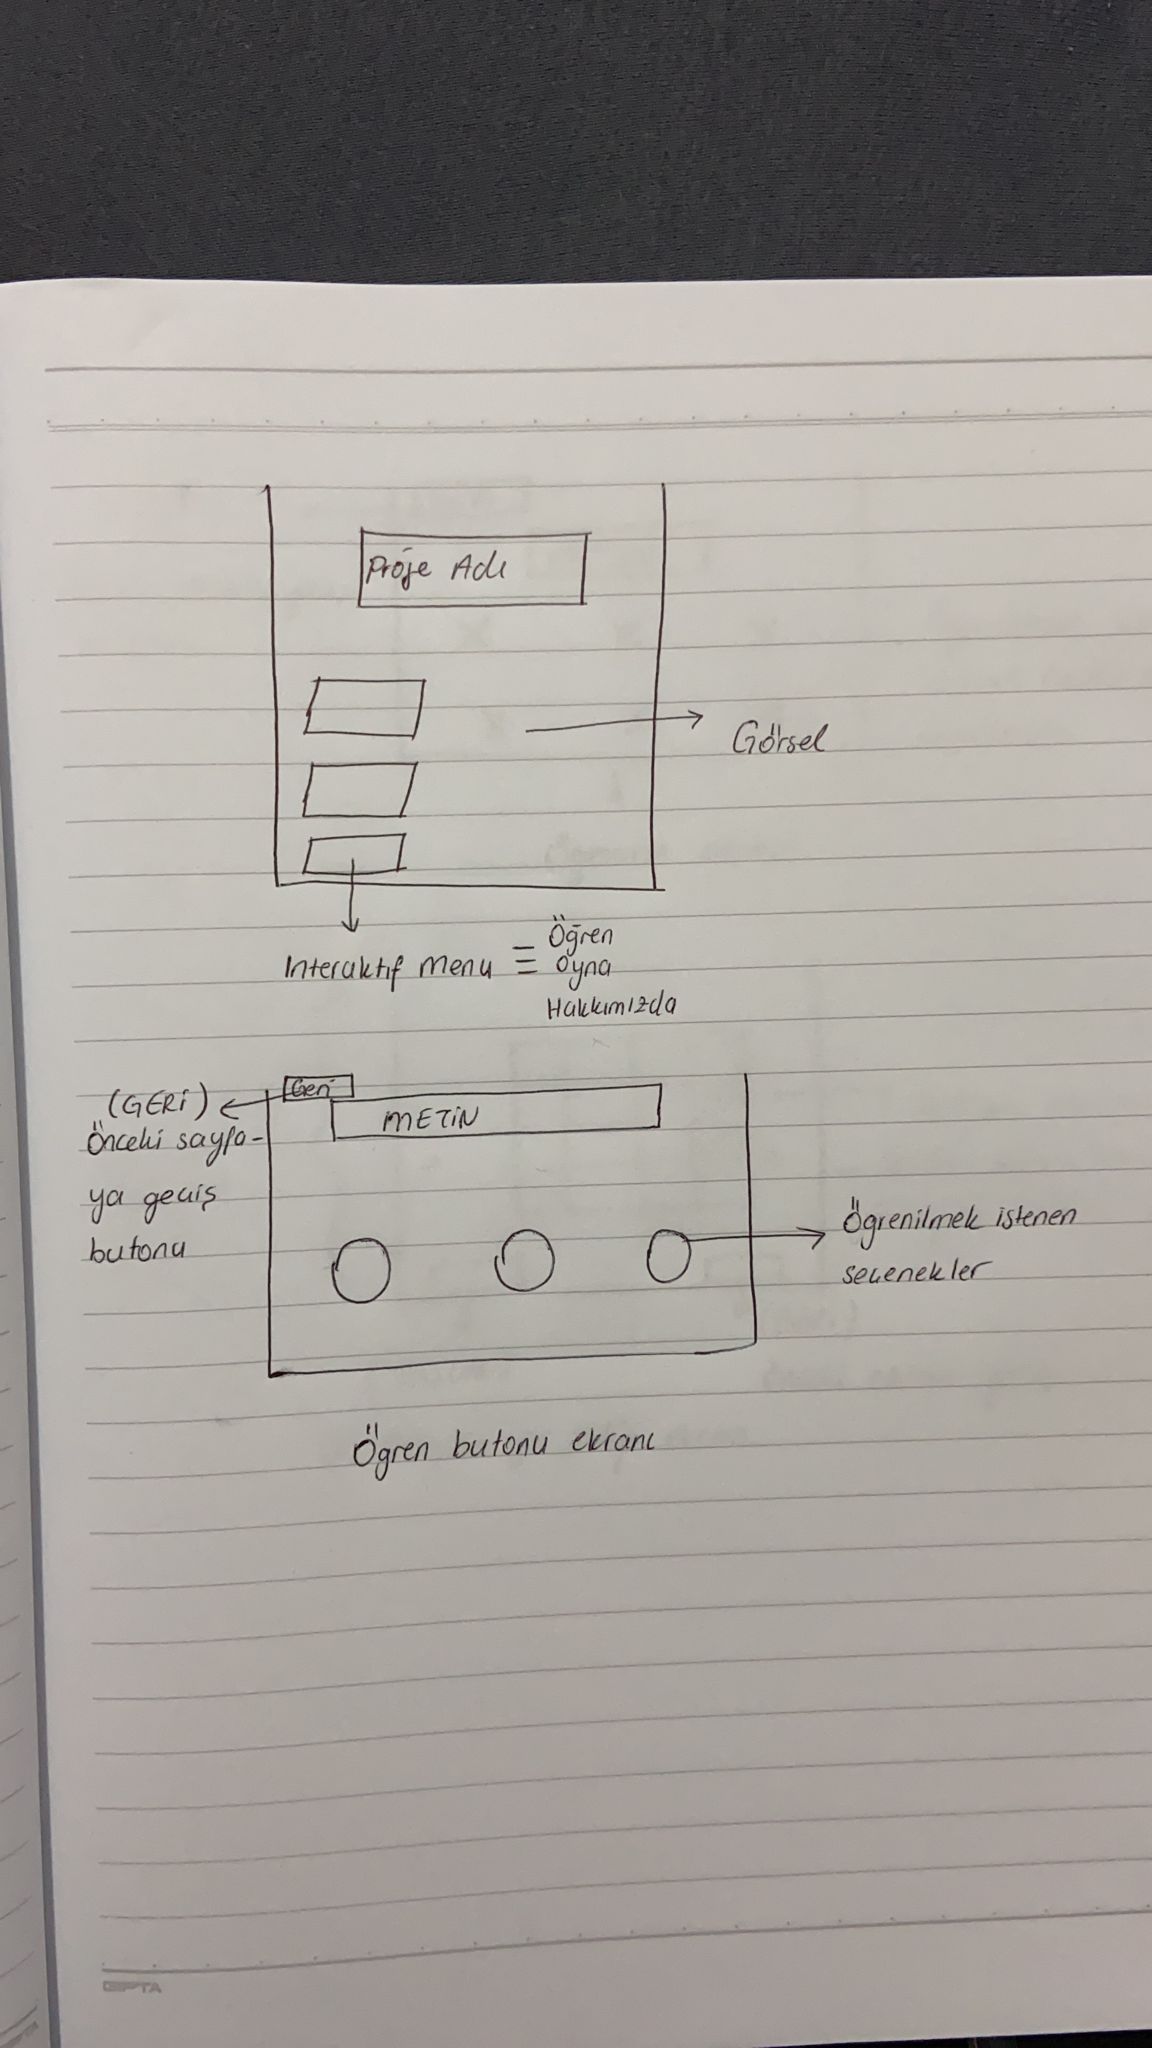 Proje Adı
Görsel
İnteraktif menu =
Öğren
Oyna
Hakkımızda
Geri
(GERİ)
METİN
Önceki sayfa-
ya geçiş
butonu
Ögrenilmek istenen
seçenekler
Ögren butonu ekranı
GIPTA